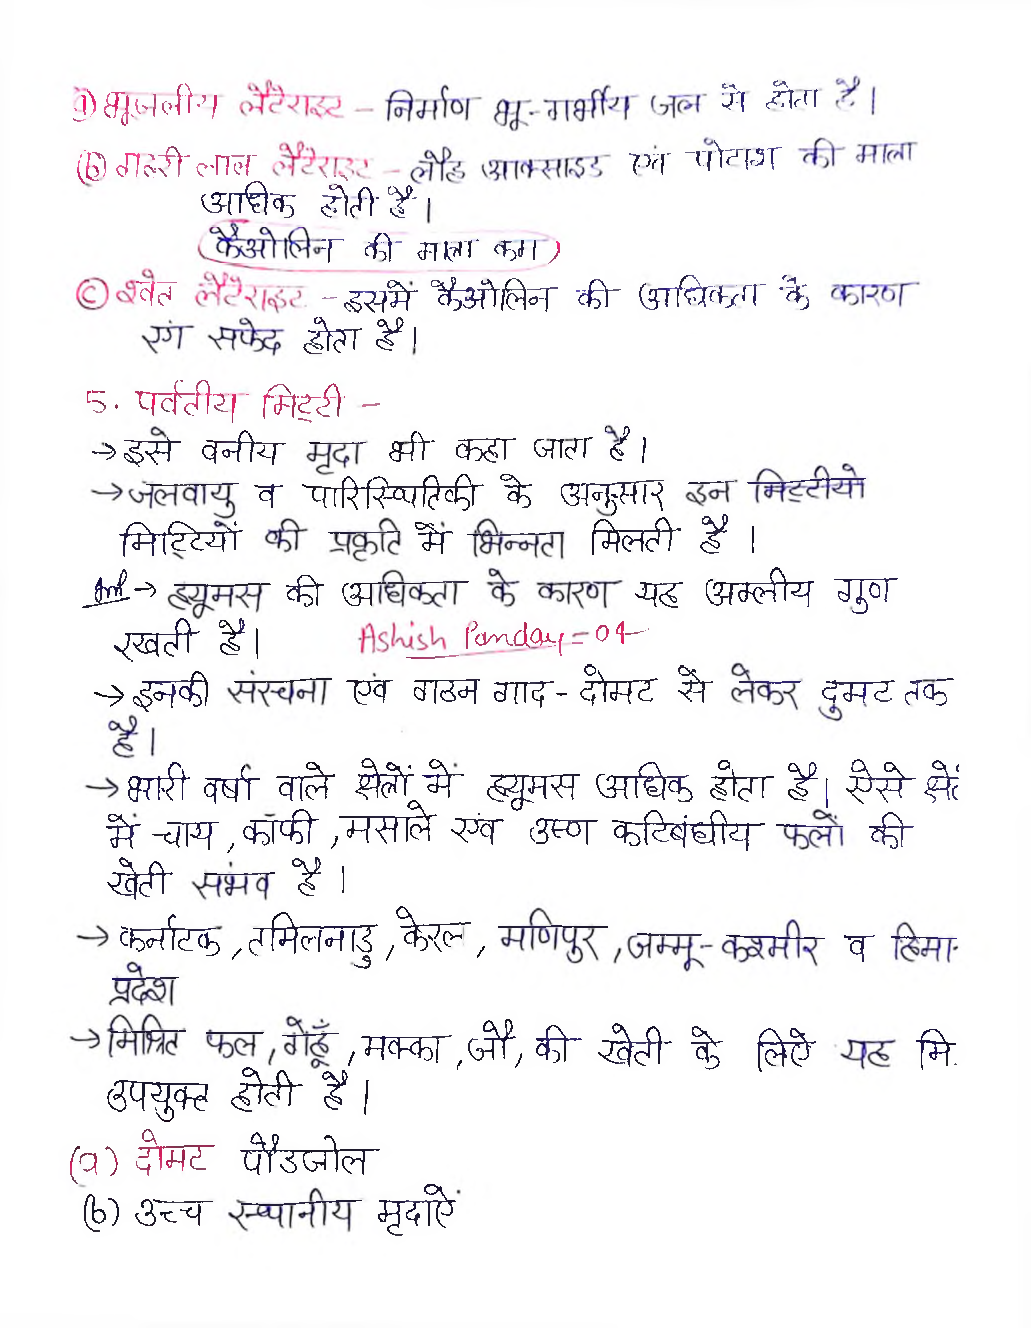 a) भूजलीय लैटेराइट - निर्माण भू-गर्भीय जल से होता है।
(b) गहरी लाल लैटेराइट - लौह आक्साइड एवं पोटाश की मात्रा
अधिक होती है।
(कैओलिन की मात्रा कम)
(c) श्वेत लैटेराइट - इसमें कैओलिन की अधिकता के कारण
रंग सफेद होता है।
5. पर्वतीय मिट्टी -
→ इसे वनीय मृदा भी कहा जाता है।
→ जलवायु व पारिस्थितिकी के अनुसार इन मिट्टीयो
मिट्टियों की प्रकृति में भिन्नता मिलती है ।
Imf → ह्यूमस की अधिकता के कारण यह अम्लीय गुण
रखती है। Ashish Panday = 04
→ इनकी संरचना एवं गठन गाद - दोमट से लेकर दुमट तक
है।
→ भारी वर्षा वाले क्षेत्रों में ह्यूमस अधिक होता है। ऐसे क्षेत्रों
में चाय , कॉफी , मसाले एवं उष्ण कटिबंधीय फलों की
खेती संभव है ।
→ कर्नाटक , तमिलनाडु , केरल , मणिपुर , जम्मू - कश्मीर व हिमा.
प्रदेश
→ मिश्रित फल , गेहूँ , मक्का , जौ , की खेती के लिऐ यह मि.
उपयुक्त होती है।
(a) दोमट पौडजोल
(b) उच्च स्थानीय मृदाऐं